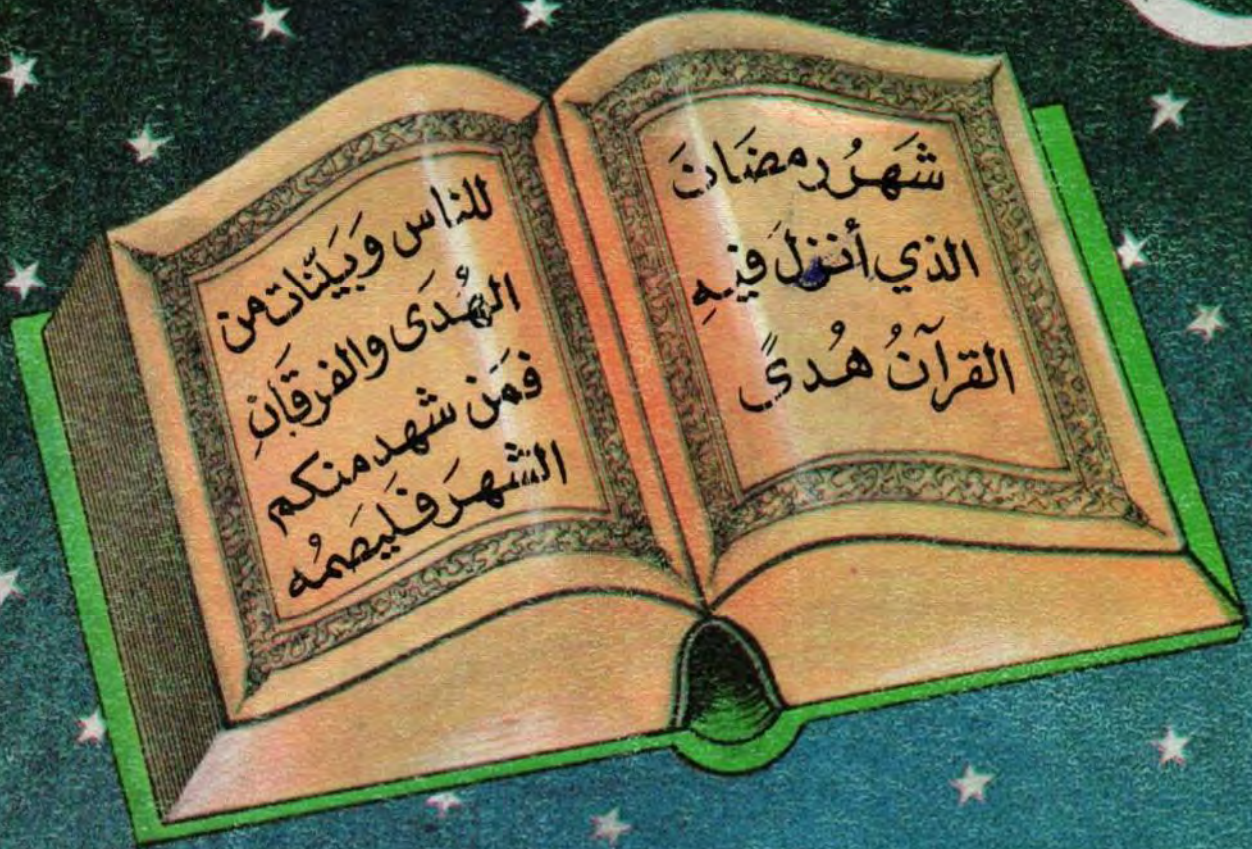 شَهرُ رمضَانَ
الذي أنزلَ فيهِ
القرآنُ هُدىً
للناس وَبَيّنات من
الهُدَى والفرقَانِ
فمَن شهد منكم
الشهرَ فليَصمُه